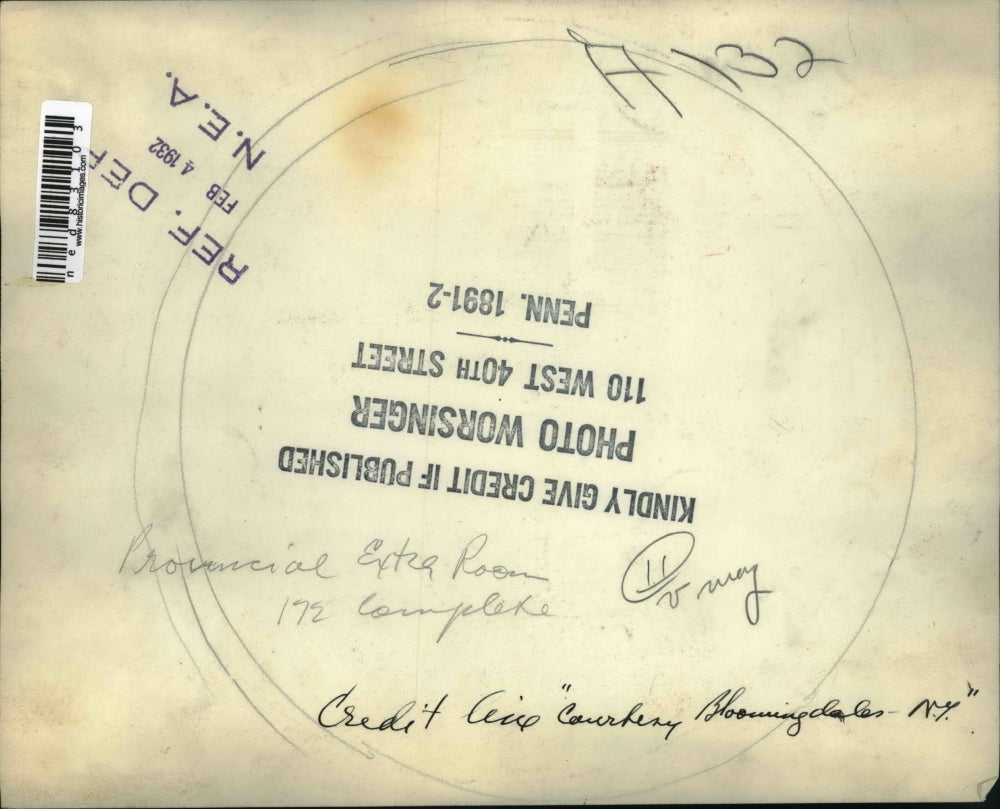 H 132
N.E.A.
FEB 4 1932
REF. DEP
www.historicimages.com
ned83103
KINDLY GIVE CREDIT IF PUBLISHED
PHOTO WORSINGER
110 WEST 40TH STREET
PENN. 1891-2
Provincial Extra Room
172 Complete
II
Credit line "Courtesy Bloomingdales - N.Y."